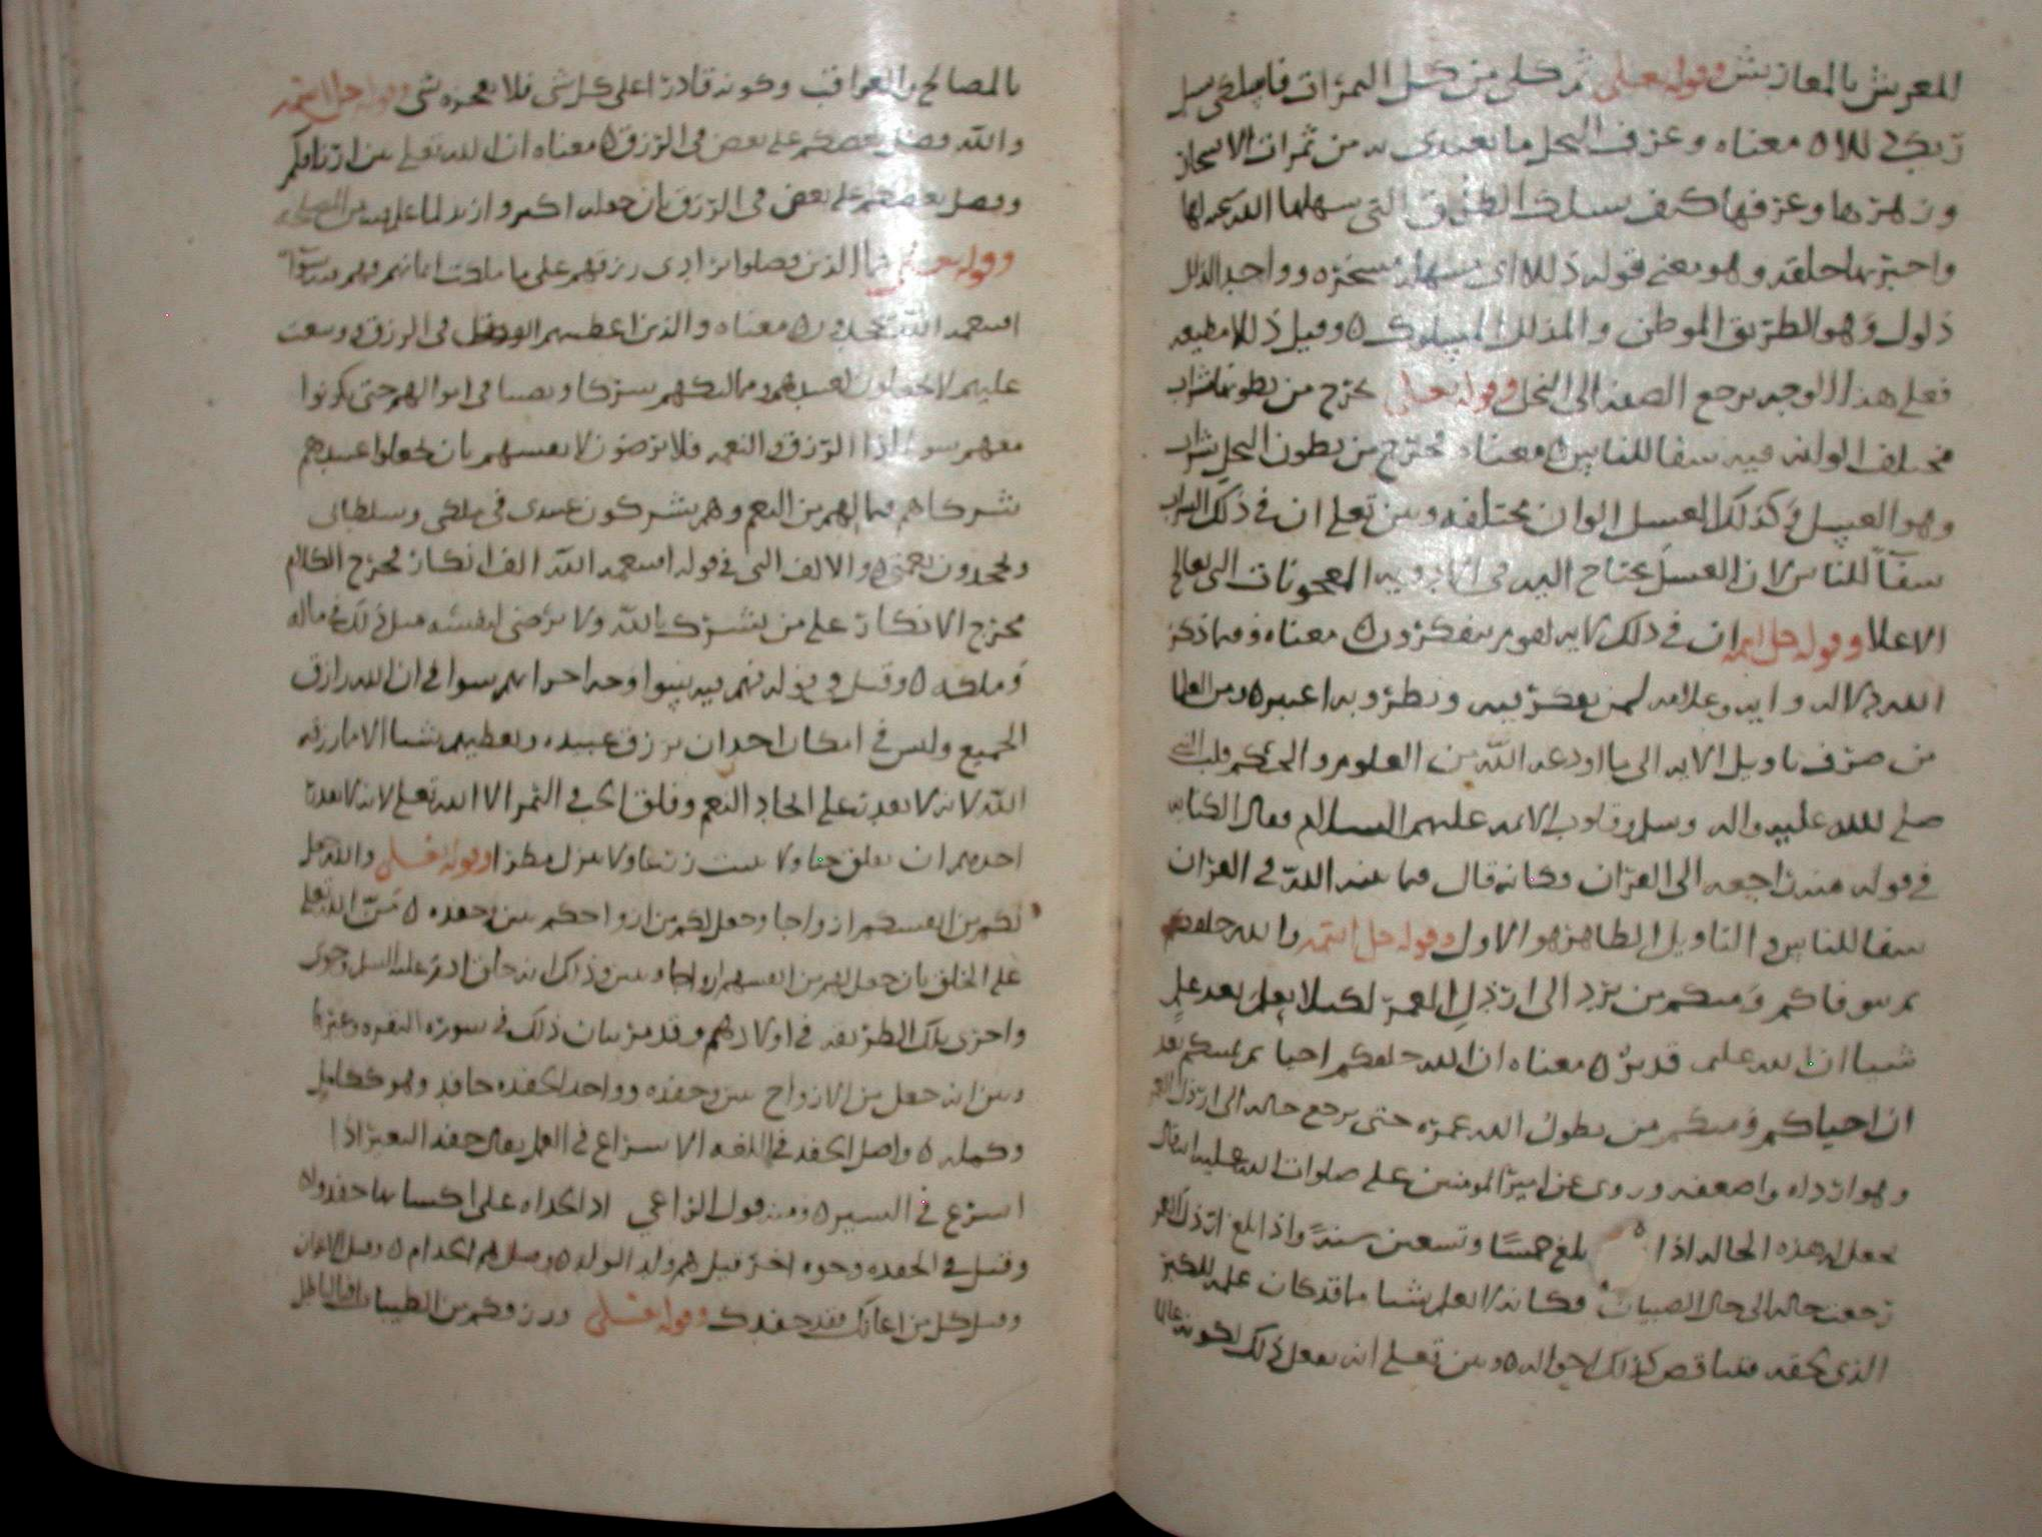 المعرش بالمعازيش وقوله تعلى ثم كلى من كل الثمرات فاسلكى سبل
ربك ذللا ه معناه وعرف النحل ما يغتدى به من ثمرات الاشجار
وزهرها وعرفها كيف يسلك الطرق التى سهلها الله لها
واخبر بها خلقه وهو معنى قوله ذللا اى سهله مسخره وواحد الذلل
ذلول وهو الطريق الموطى والمذلل المسلوك ه وقيل ذللا مطيعه
فعلى هذا الوجه يرجع الصفه الى النحل وقوله تعالى يخرج من بطونها شراب
مختلف الوانه فيه شفا للناس ه معناه يخرج من بطون النحل شراب
وهو العسل وكذلك العسل الوان مختلفه وبين تعلى ان فى ذلك الشراب
شفاً للناس لان العسل يحتاج اليه فى المعجونات التى يعالج
الاعلا وقوله جل اسمه ان فى ذلك لايه لقوم يتفكرون ه معناه وفيما ذكر
الله دلاله وايه وعلامه لمن يفكر فيه ونظر وبه اعتبر ه ومن العلما
من صرف تاويل الايه الى ما اودعه الله من العلوم والحكم قلب النبى
صلى الله عليه واله وسلم وقلوب الايمه عليهم السلام وهاء الكنايه
فى قوله عنده راجعه الى القران وكانه قال فيما بينه الله فى القران
شفا للناس والتاويل الظاهر هو الاول وقوله جل اسمه والله خلقكم
ثم يتوفاكم ومنكم من يرد الى ارذل العمر لكيلا يعلم بعد علم
شيا ان الله عليم قدير ه معناه ان الله خلقكم احيا ثم يميتكم بعد
ان احياكم ومنكم من يطول الله عمره حتى يرجع حاله الى ارذل العمر
وهو ارداه واضعفه وروى عن امير المومنين على صلوات الله عليه انه قال
يجعل له هذه الحاله اذا بلغ خمسًا وتسعين سنةً واذا بلغ ارذل العمر
رجعت حاله الى حال الصبيان وكانه لا يعلم شيا مما قد كان علمه للكبر
الذى لحقه فتناقص كذلك احواله ه وبين تعلى انه يفعل ذلك لكونه عالما
بالمصالح والعواقب وكونه قادرا على كل شى فلا يعجزه شى وقوله جل اسمه
والله فضل بعضكم على بعض فى الرزق ه معناه ان الله تعلى بين ارزاقكم
وفضل بعضكم على بعض فى الرزق بان جعله اكبر وازيد لما علمه من المصلحه
وقوله تعلى فما الذين فضلوا برادى رزقهم على ما ملكت ايمانهم فهم فيه سوآ
افبنعمه الله يجحدون ه معناه والذين اعطيتهم الفضل فى الرزق ووسعت
عليهم لا يجعلون لعبيدهم ومماليكهم شركا ونصيبا فى اموالهم حتى يكونوا
معهم سوا اذا الرزق والنعمه فلا يرضون لانفسهم بان يجعلوا عبيدهم
شركاهم فيما لهم من النعم وهم يشركون عبيدى فى ملكى وسلطانى
ويجحدون نعمتى ه والالف التى فى قوله افبنعمه الله الف انكار يخرج الكلام
مخرج الانكار على من يشرك بالله ولا يرضى لنفسه مثل ذلك فى ماله
وملكه ه وقيل فى قوله فهم فيه سوا وجه اخر انهم سوا فى ان الله رازق
الجميع وليس فى امكان احد ان يرزق عبيده ويعطيهم شيا الا ما رزقه
الله لانه لا يقدر على ايجاد النعم وفلق الحب فى الثمر الا الله تعلى لانه لا يقدر
احدهم ان يفلق حبا ولا ينبت زرعا ولا ينزل مطرا وقوله تعلى والله جعل
لكم من انفسكم ازواجا وجعل لكم من ازواجكم بنين وحفده ه مَنّ الله تعلى
على الخلق بان جعل لهم من انفسهم ازواجا وبين وذاك انه خلق ادم عليه السلم وحوى
واجرى تلك الطريقه فى اولادهم وقد مر بيان ذلك فى سوره البقره وغيرها
وبين انه جعل من الازواج بنين وحفده وواحد الحفده حافد وهو ككامل
وكمله ه واصل الحفد فى اللغه الاسراع فى العمل يقال حفد البعير اذا
اسرع فى السير ه ومنه قول الراعى اد الحداه على اكسايها حفدوا ه
وقيل فى الحفده وجوه اخر قيل هم ولد الولد ه وقيل هم الخدام ه وقيل الاعوان
وقيل كل من اعانك فقد حفدك وقوله تعلى ورزقكم من الطيبات افبالباطل